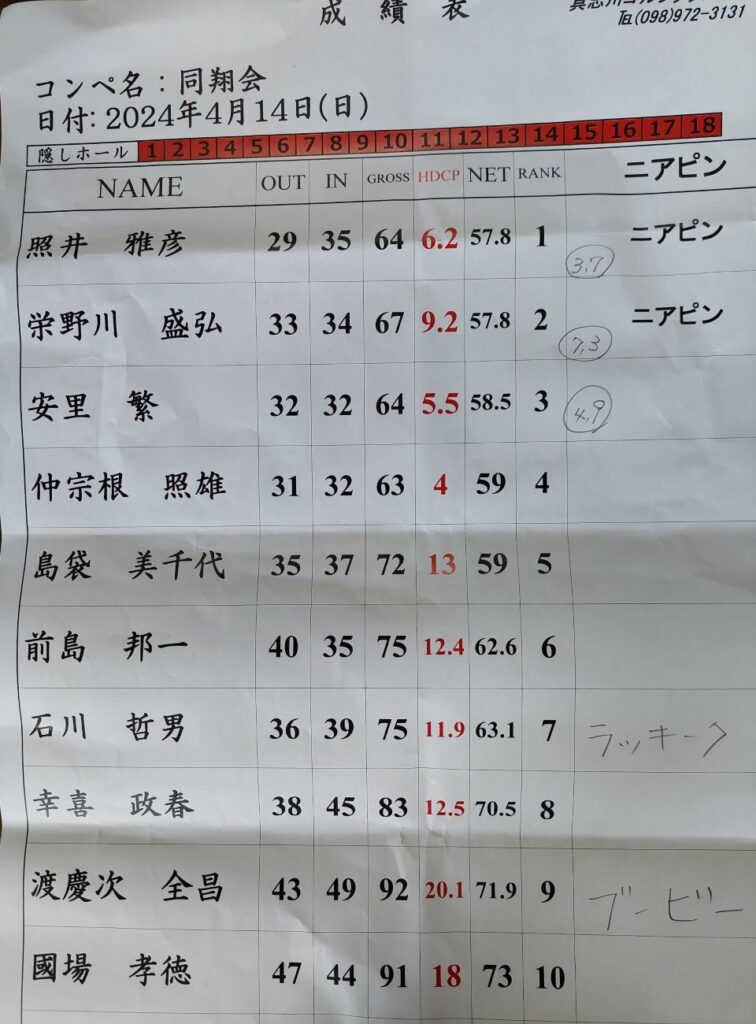 成績表
℡(098)972-3131
コンペ名：同翔会
日付: 2024年4月14日(日)
隠しホール 1 2 3 4 5 6 7 8 9 10 11 12 13 14 15 16 17 18
NAME OUT IN GROSS HDCP NET RANK ニアピン
照井 雅彦 29 35 64 6.2 57.8 1 ニアピン
3.7
栄野川 盛弘 33 34 67 9.2 57.8 2 ニアピン
7.3
安里 繁 32 32 64 5.5 58.5 3 4.9
仲宗根 照雄 31 32 63 4 59 4
島袋 美千代 35 37 72 13 59 5
前島 邦一 40 35 75 12.4 62.6 6
石川 哲男 36 39 75 11.9 63.1 7 ラッキー7
幸喜 政春 38 45 83 12.5 70.5 8
渡慶次 全昌 43 49 92 20.1 71.9 9 ブービー
國場 孝徳 47 44 91 18 73 10